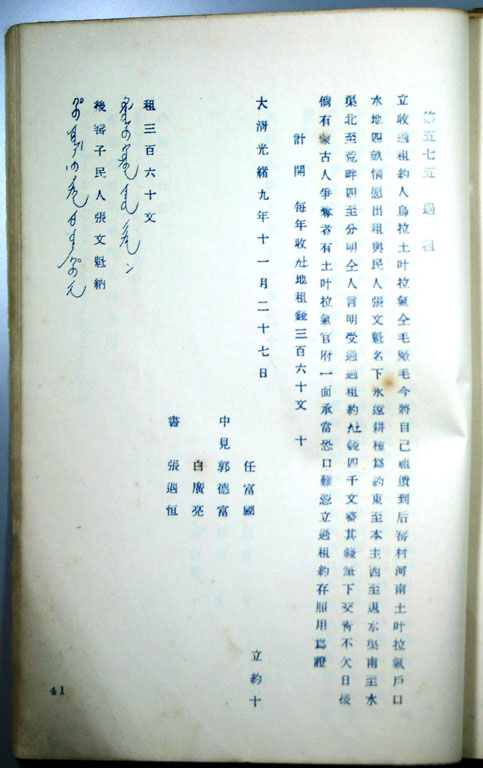 第五七五 過租
立收過租約人烏拉土叶拉氣仝毛廠毛今將自己祖遺到后窑村河南土叶拉氣戶口
水地四畝情愿出租與民人張文魁名下永遠耕種為約東至本主西至退水渠南至水
渠北至荒畔四至分明仝人言明受過過租約錢四千文整其錢筆下交清不欠日後
倘有蒙古人爭奪者有土叶拉氣官府一面承當恐口難憑立過租約存照用為證
計開 每年收地租錢三百六十文 十
大淸光緒九年十一月二十七日
立約十
任富國
中見郭德富
白廣亮
書 張遇恒
租三百六十文
後窑子民人張文魁納
41